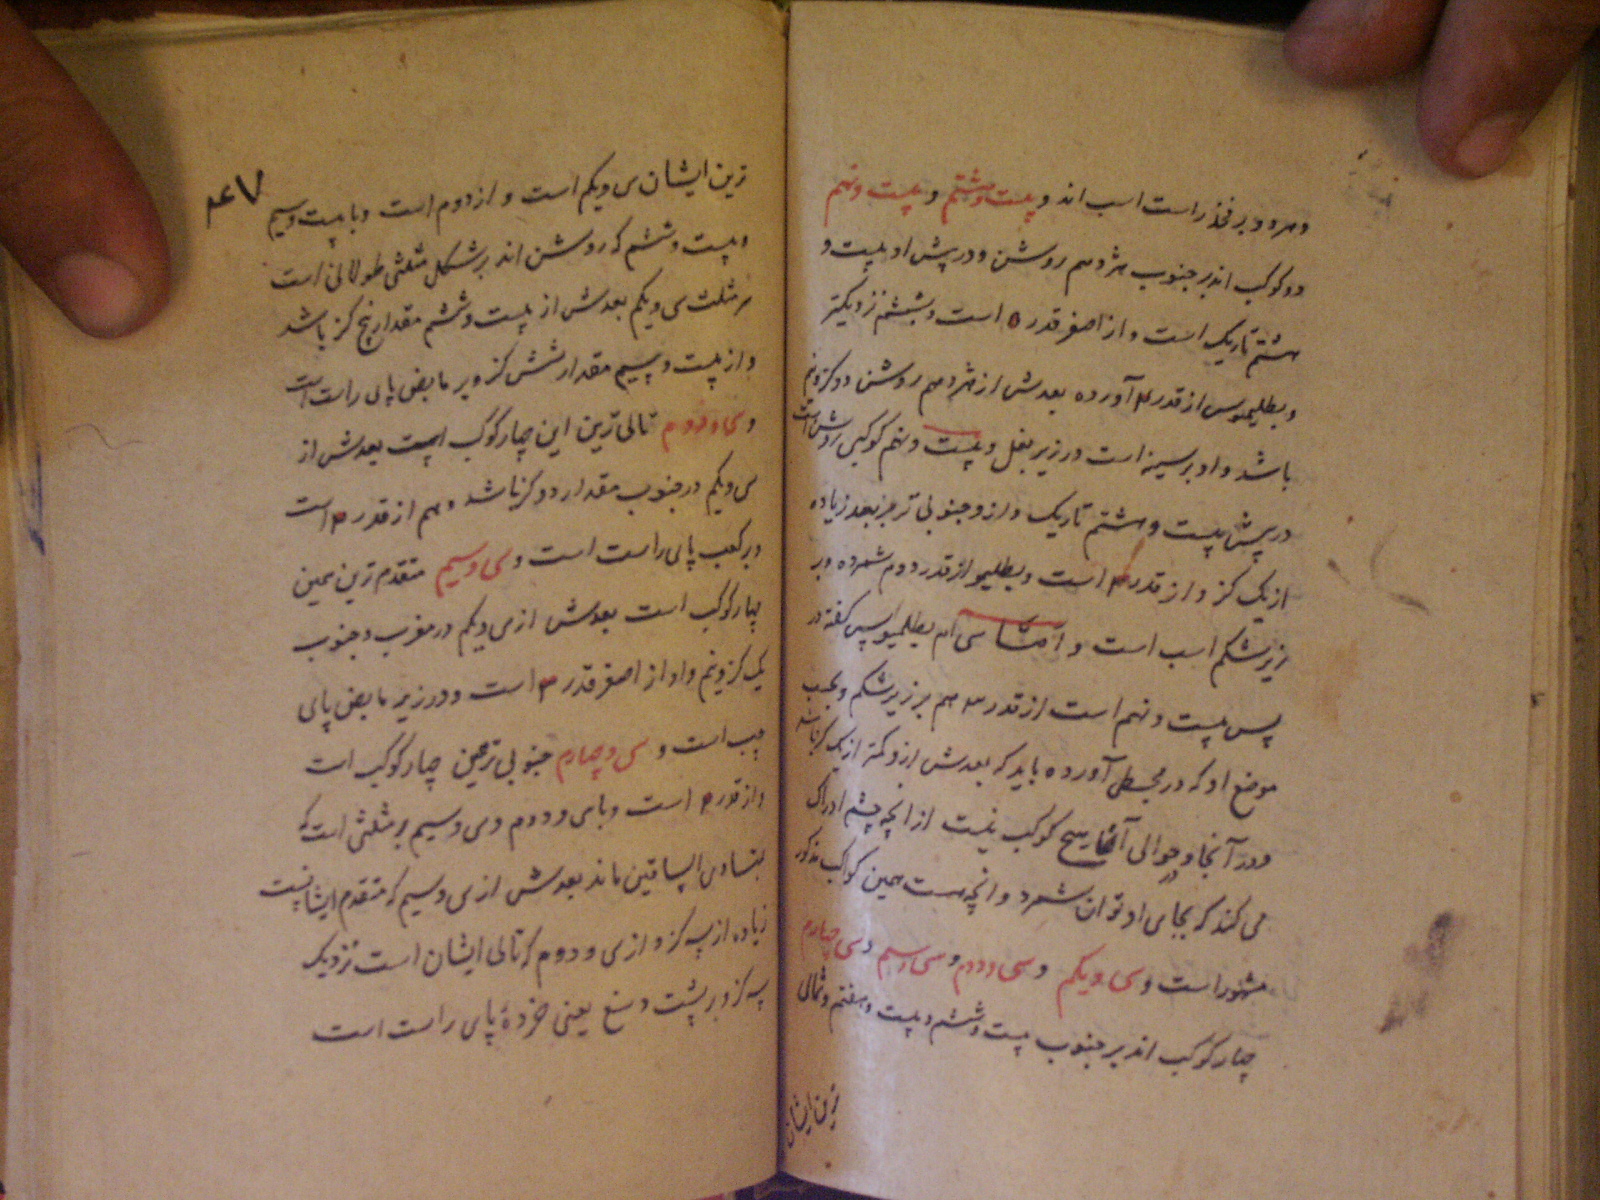 و هر دو بر فخذ راست اسب اند و بیست و هشتم و بیست و نهم
دو کوکب اند بر جنوب هژدهم روشن و در پیش او بیست و
هشتم تاریک است و از اصغر قدر ۵ است و بششم نزدیکتر
و بطلیموس از قدر ۴ آورده بعدش از هژدهم روشن دو گز و نیم
باشد و او بر سینه است در زیر بغل و بیست و نهم کوکبی روشن است
در پیش بیست و هشتم تاریک و ازو جنوبی تر ببعد زیاده
از یک گز و از قدر ۴ است و بطلیموس از قدر دوم شمرده و بر
زیر شکم اسب است و اما سی ام بطلیموس گفته در
پس بیست و نهم است از قدر ۴ هم بر زیر شکم و بحسب
موضع او که در مجسطی آورده باید که بعدش ازو کمتر از یک گز باشد
و در آنجا و در حوالی آنجا هیچ کوکب نیست از انچه چشم ادراک
می کند که بجای او توان شمرد و انچه هست همین کواکب مذکور
مشهور است و سی و یکم و سی و دوم و سی و سیم و سی و چهارم
چهار کوکب اند بر جنوب بیست و ششم و بیست و هفتم و شمالی
ترین ایشان
۴۶۷
ترین ایشان سی و یکم است و از دوم است و با بیست و سیم
و بیست و ششم که روشن اند بر شکل مثلثی طولانی است
سر مثلث سی و یکم بعدش از بیست و ششم مقدار پنج گز باشد
و از بیست و سیم مقدار شش گز و بر مابض پای راست است
و سی و دوم تالی ترین این چهار کوکب است بعدش از
سی و یکم در جنوب مقدار دو گز باشد و هم از قدر ۴ است
و بر کعب پای راست است و سی و سیم متقدم ترین همین
چهار کوکب است بعدش از سی و یکم در مغرب و جنوب
یک گز و نیم و او از اصغر قدر ۳ است و در زیر مابض پای
چپ است و سی و چهارم جنوبی ترین همین چهار کوکب است
و از قدر ۴ است و با سی و دوم و سی و سیم بر مثلثی است که
بتساوی الساقین ماند بعدش از سی و سیم که متقدم ایشانست
زیاده از سه گز و از سی و دوم که تالی ایشان است نزدیک
سه گز و بر پشت رسغ یعنی خردهٔ پای راست است